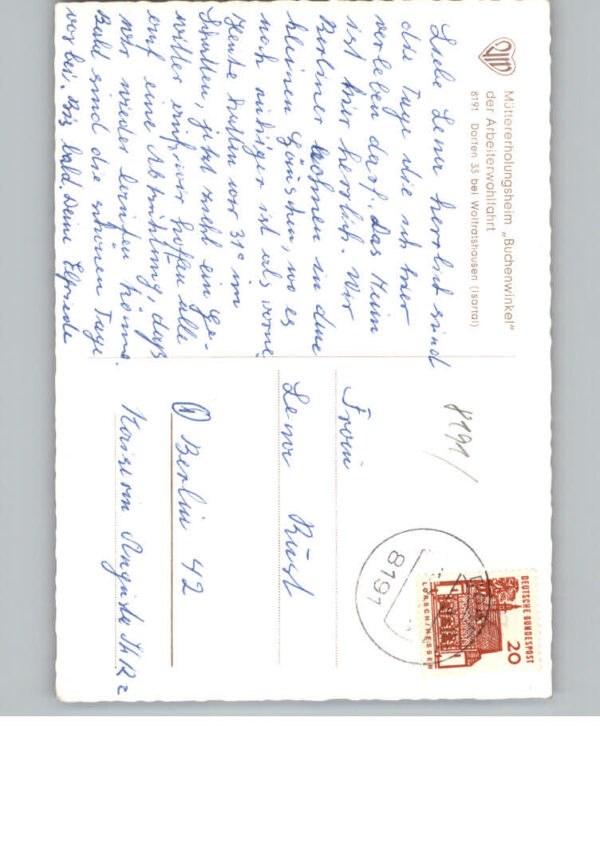 Müttererholungsheim „Buchenwinkel"
der Arbeiterwohlfahrt
8191 Dorfen 33 bei Wolfratshausen (Isartal)
Liebe Lena herrlich sind
die Tage die ich hier
verleben darf. Das Heim
ist hier herrlich. Wir
Berliner wohnen in eine
kleinen Häuschen, wo es
noch ruhiger ist als vorne.
Heute hatten wir 31° im
Schatten, jetzt zieht ein Ge-
witter auf, wir hoffen alle
auf eine Abkühlung, daß
wir wieder laufen könn.
Bald sind die schönen Tage
vorbei. Bis bald. Deine Elfriede
8191
8191
DEUTSCHE BUNDESPOST
20
LORSCH/HESSEN
Frau
Lena
1 Berlin 42
Kaiserin Augusta Str 2